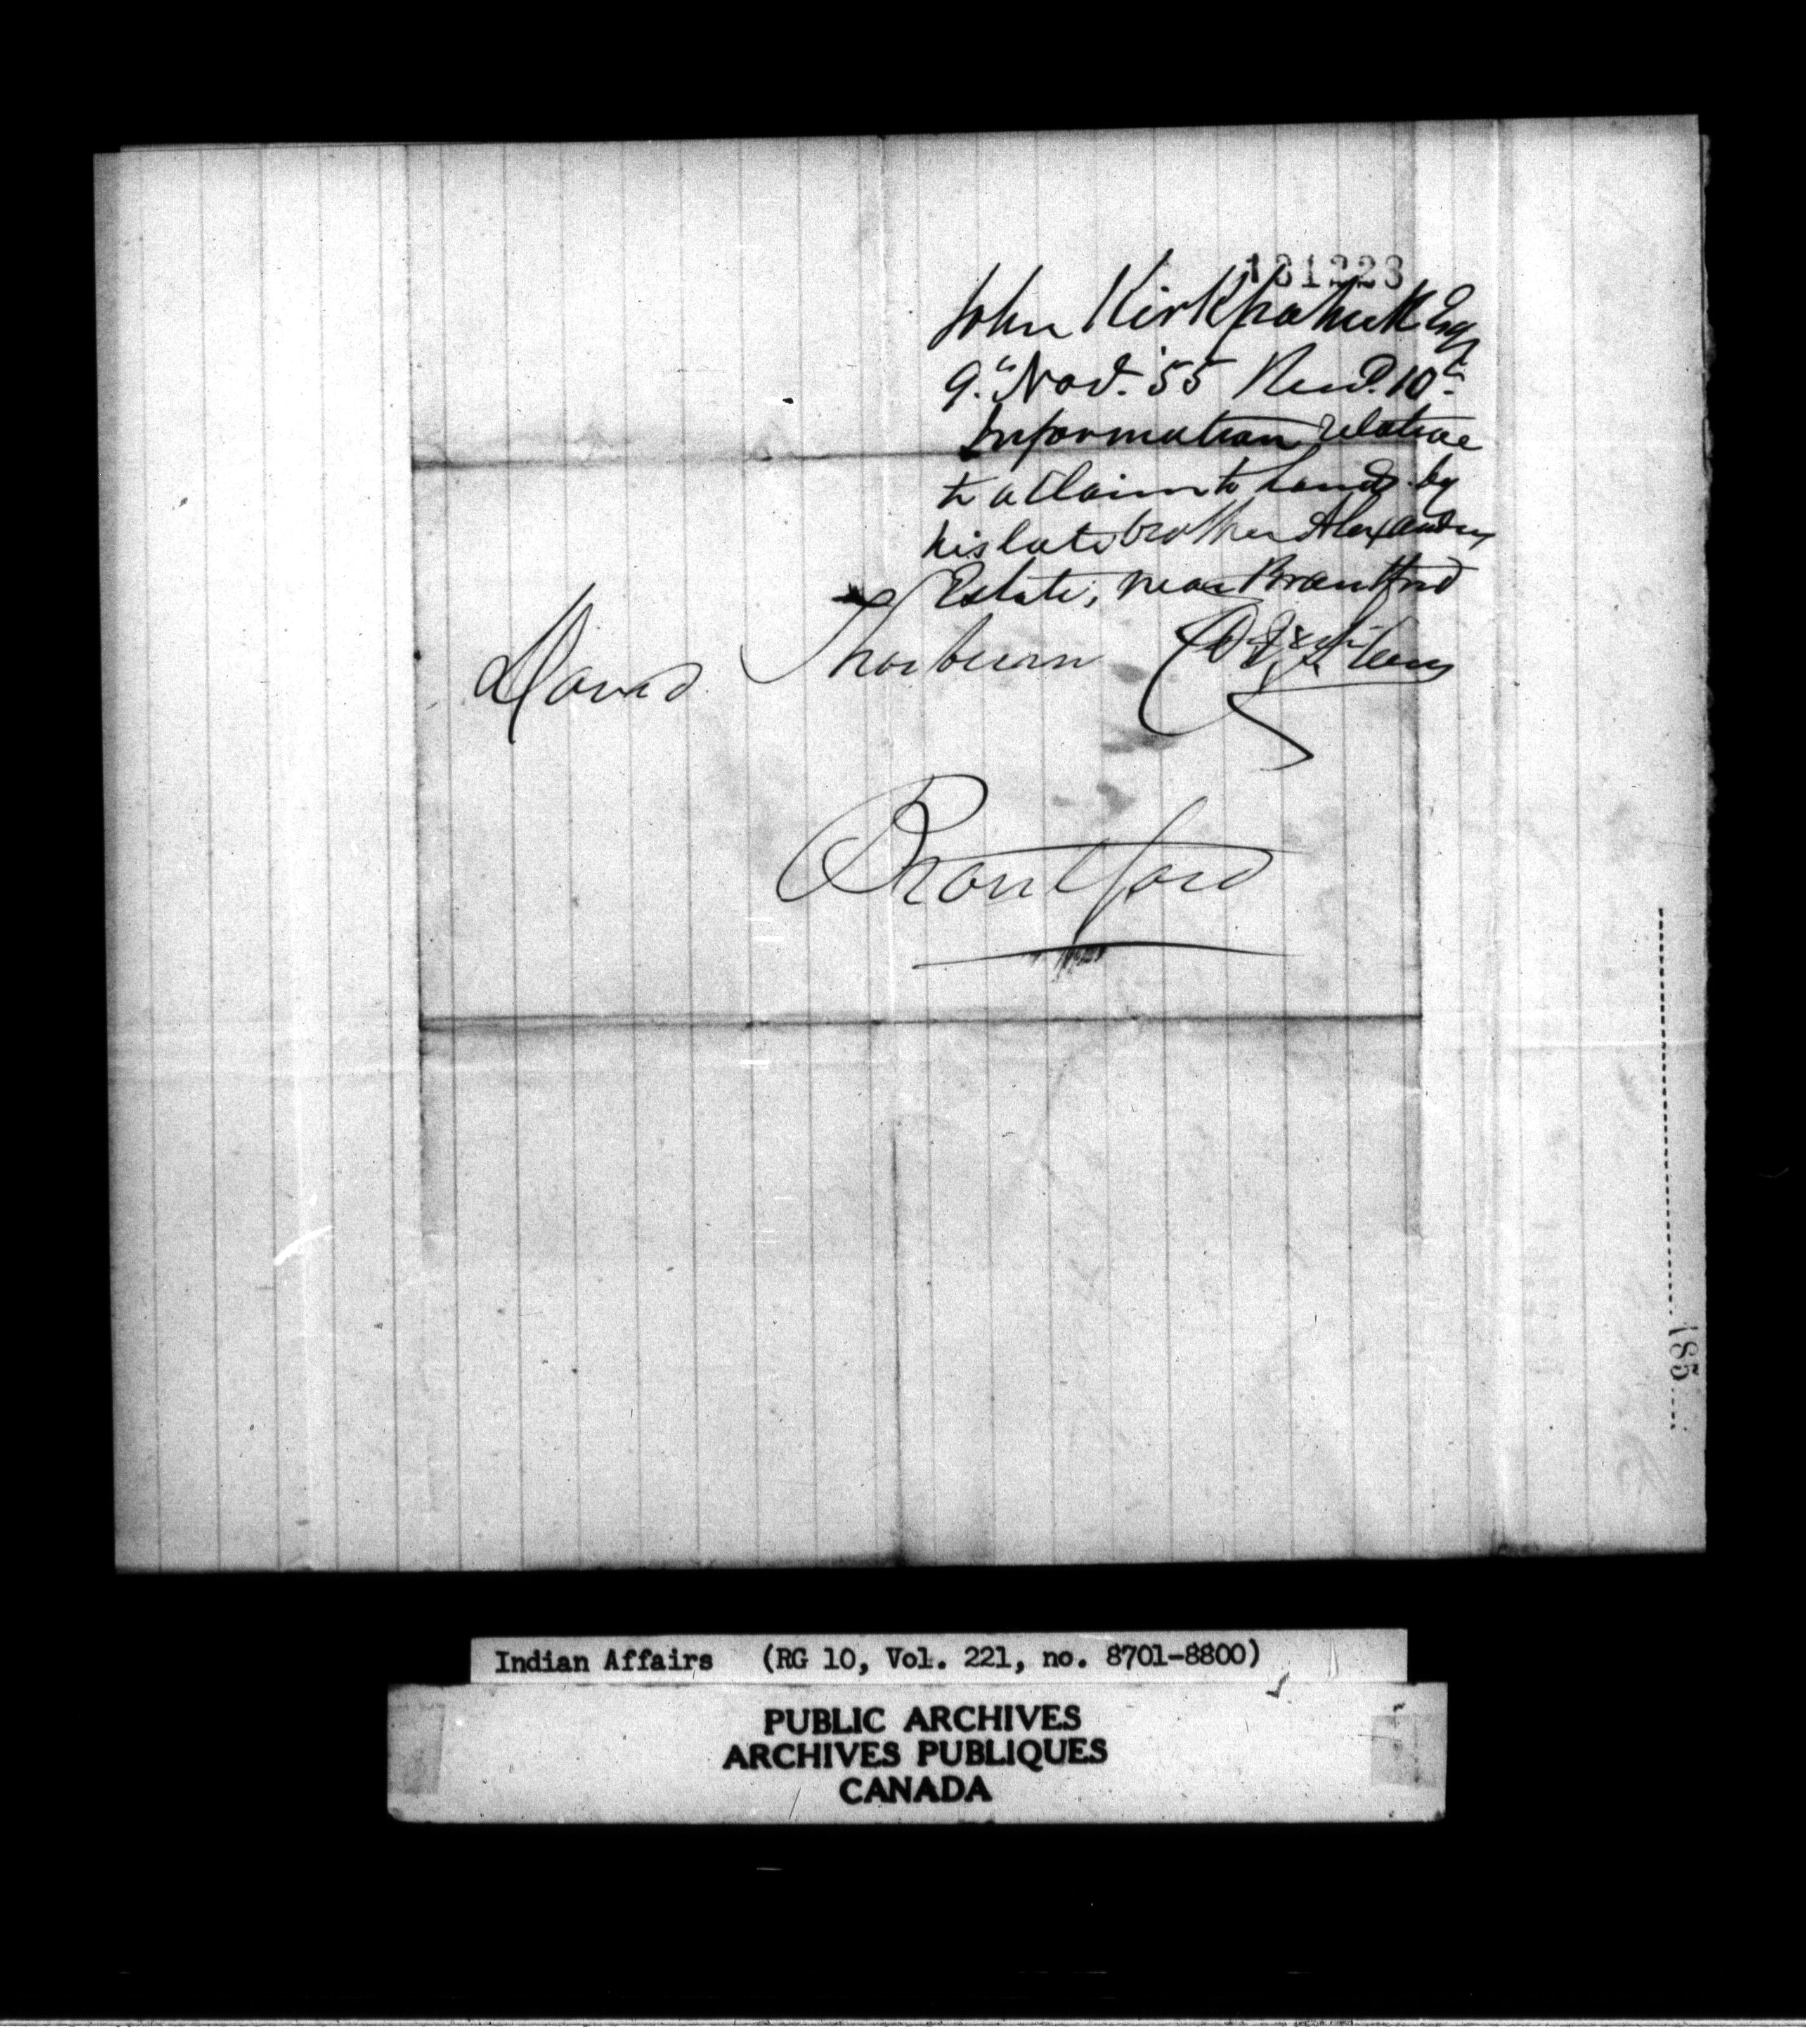 131223
John Kirkpatrick Esq
9th Nov. '55 Recd. 10th
Information relative
to a Claim to Lands by
his late brother Alexanders
Estate, near Brantford
David Thorburn
Brantford
185
Indian Affairs (RG 10, Vol. 221, no. 8701-8800)
PUBLIC ARCHIVES
ARCHIVES PUBLIQUES
CANADA